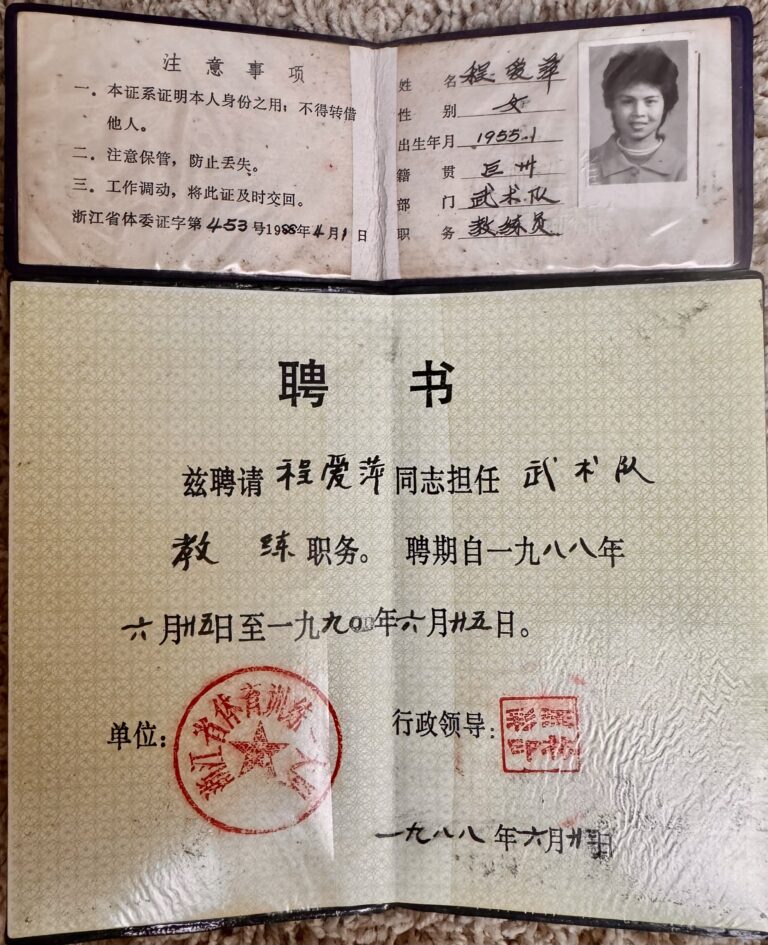 注意事项
一．本证系证明本人身份之用；不得转借
他人。
二．注意保管，防止丢失。
三．工作调动，将此证及时交回。
浙江省体委证字第453号1988年4月1日
姓名 程爱萍
性别 女
出生年月 1955.1
籍贯 州
部门 武术队
职务 教练员
聘书
兹聘请程爱萍同志担任武术队
教练职务。聘期自一九八八年
六月廿五日至一九九〇年六月廿五日。
单位：
浙江省体育训练一大队
行政领导：
一九八八年六月廿五日